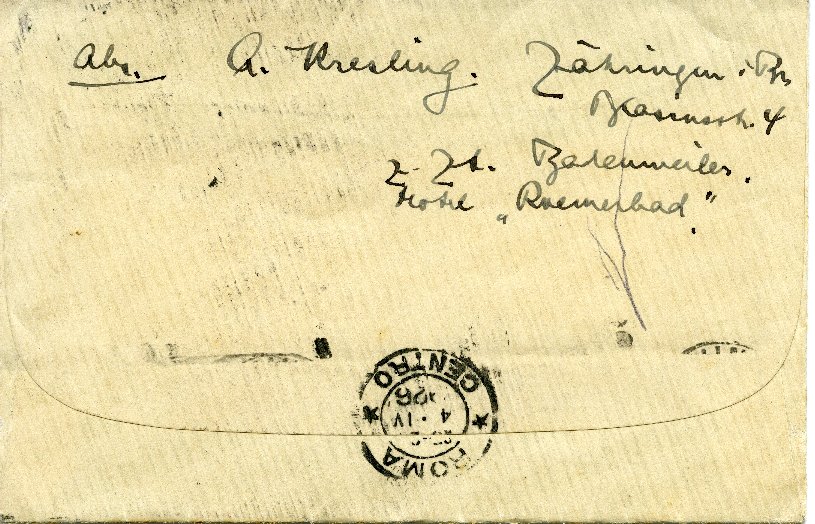 Abs. A. Kresling. Zähringen i. Br.
Blasiusstr. 4
z. Zt. Badenweiler.
Hotel „Roemerbad".
ROMA CENTRO
4 · IV
26